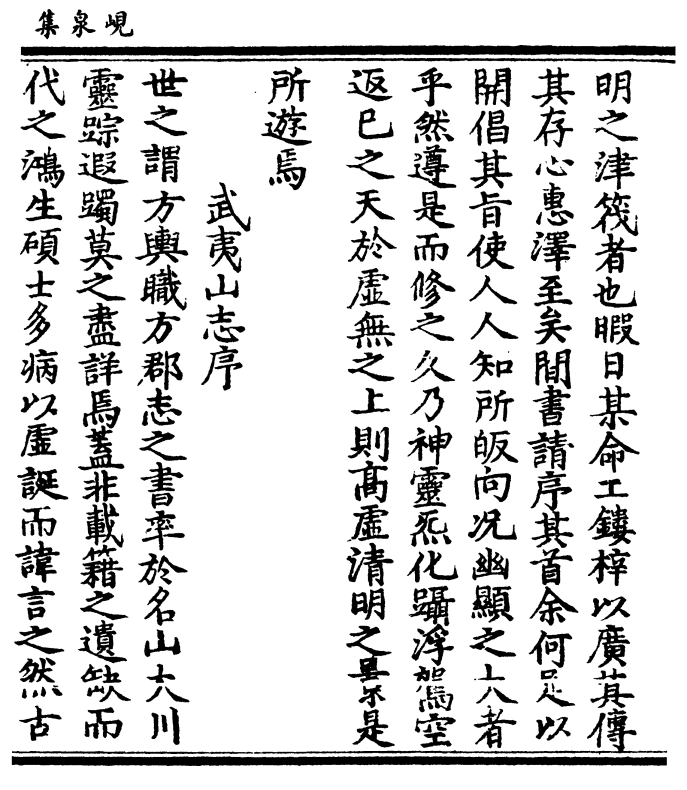 峴泉集
明之津筏者也暇日某命工鏤梓以廣其傳
其存心惠澤至矣間書請序其首余何足以
開倡其旨使人人知所皈向况幽顯之大者
乎然遵是而修之久乃神靈炁化躡浮駕空
返已之天於虛無之上則髙虛清明之景是
所遊焉
武夷山志序
世之謂方輿職方郡志之書率於名山大川
靈踪遐躅莫之盡詳焉蓋非載籍之遺缺而
代之鴻生碩士多病以虛誕而諱言之然古